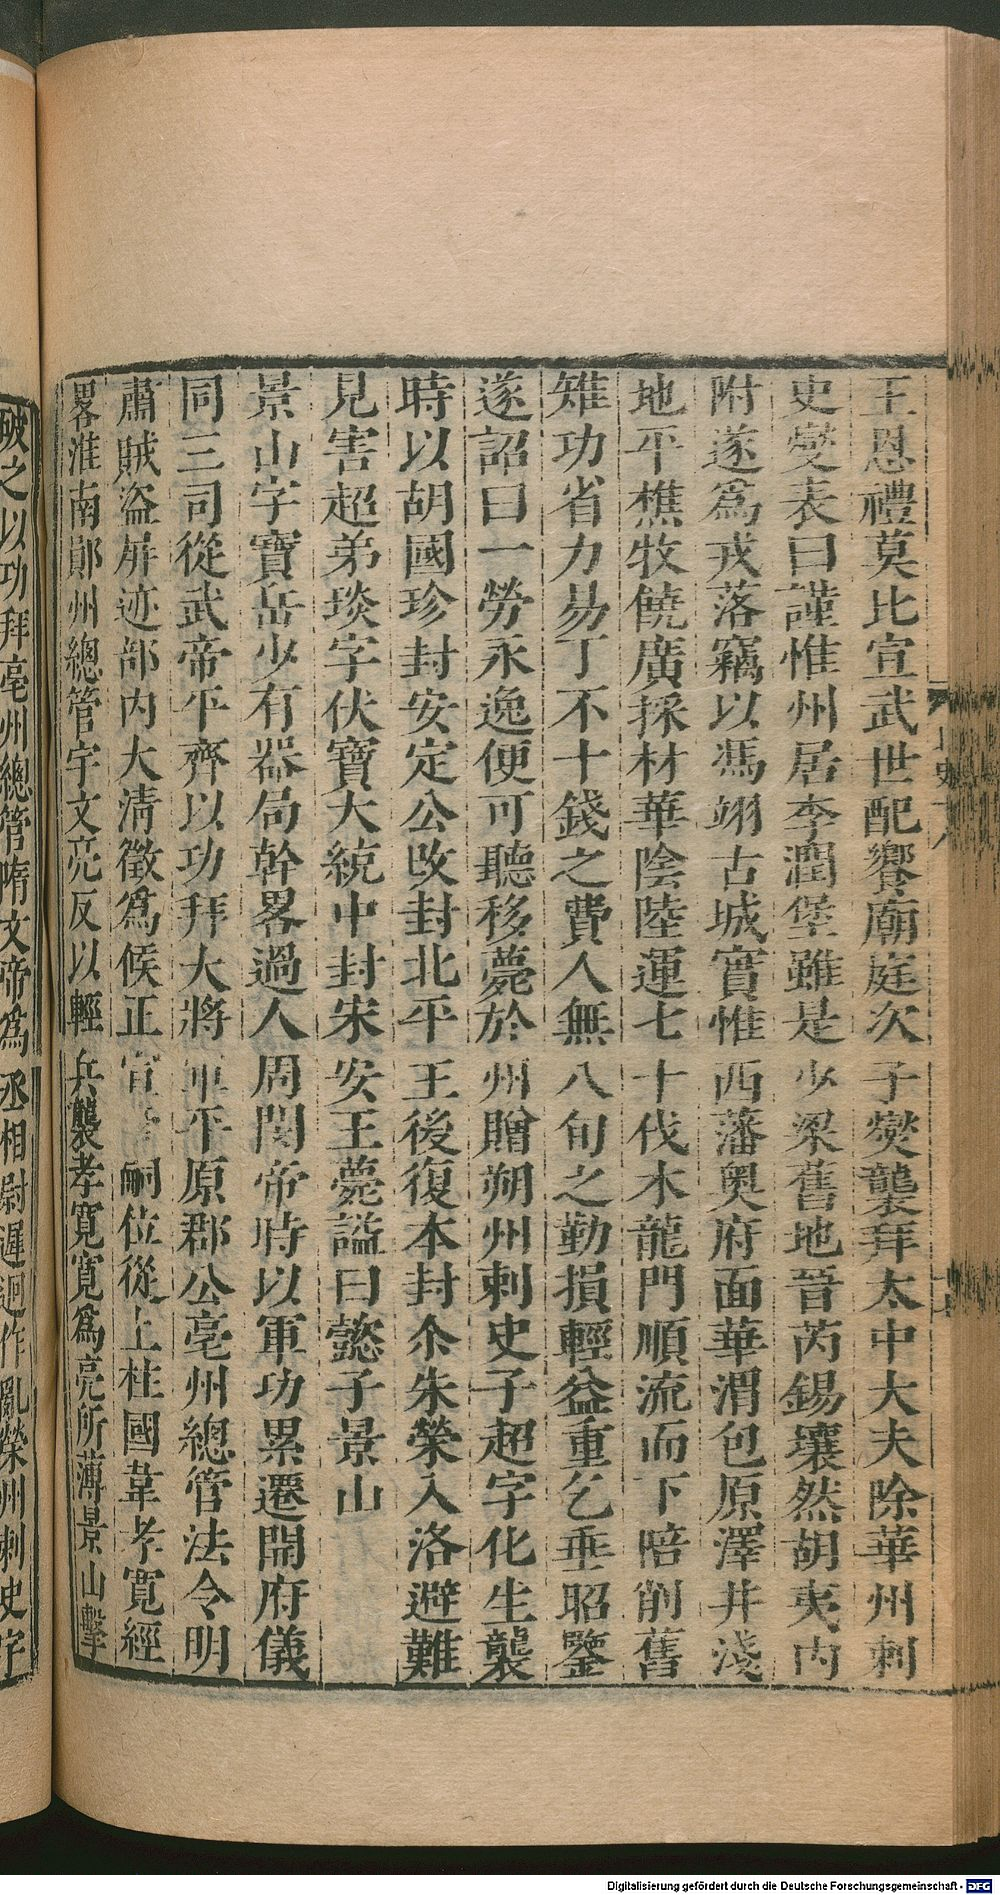 王恩禮莫比宣武世配饗廟庭次子燮襲拜太中大夫除華州刺
史燮表曰謹惟州居李潤堡雖是少梁舊地晉芮錫壤然胡夷內
附遂爲戎落竊以馮翊古城實惟西藩奧府面華渭包原澤井淺
地平樵牧饒廣採材華陰陸運七十伐木龍門順流而下陪削舊
雉功省力易丁不十錢之費人無八旬之勤損輕益重乞垂昭鑒
遂詔曰一勞永逸便可聽移薨於州贈朔州刺史子超字化生襲
時以胡國珍封安定公改封北平王後復本封尒朱榮入洛避難
見害超弟琰字伏寶大統中封宋安王薨諡曰懿子景山
景山字寶岳少有器局幹畧過人周閔帝時以軍功累遷開府儀
同三司從武帝平齊以功拜大將軍平原郡公亳州總管法令明
肅賊盜屏迹部內大清徵爲候正宣 嗣位從上柱國韋孝寬經
畧淮南鄖州總管宇文亮反以輕兵襲孝寬寬爲亮所薄景山擊
破之以功拜亳州總管隋文帝爲丞相尉遲迥作亂榮州刺史宇
Digitalisierung gefördert durch die Deutsche Forschungsgemeinschaft - DFG